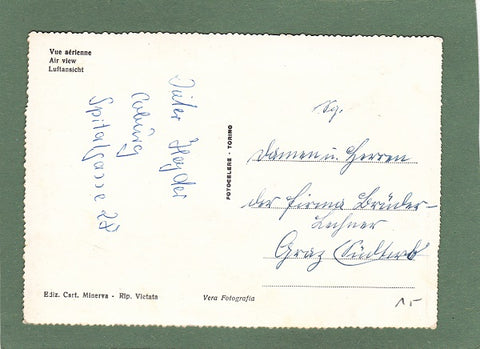 Vue aérienne
Air view
Luftansicht
Coburg
Spitalgasse 27
FOTOCELERE · TORINO
Sg.
Damen u. Herren
der Firma Brüder-
Lechner
Graz
Ediz. Cart. Minerva - Rip. Vietata
Vera Fotografia
15